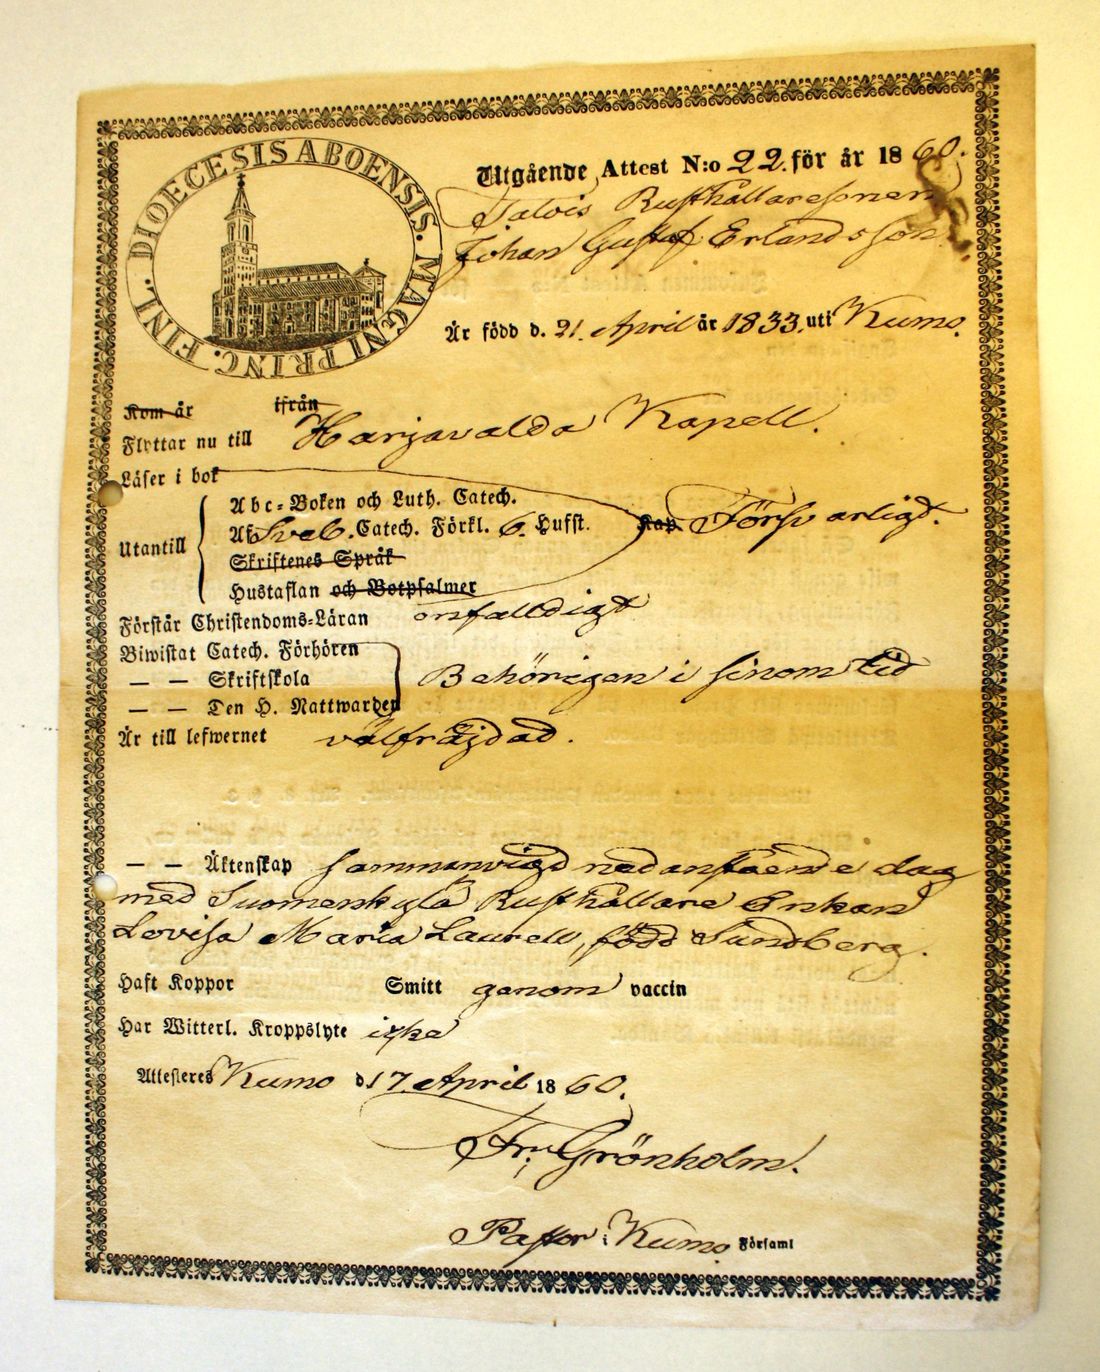 DIOECESIS ABOENSIS. MAGNI PRINC. FINL.
Utgående Attest N:o 22. för år 1860.
Talois Rusthållaresonen
Johan Gustaf Erlandsson
Är född d. 21. April år 1833. uti Kumo.
Kom år ifrån
Flyttar nu till Harjavalda Kapell.
Läser i bok
Utantill
Abc-Boken och Luth. Catech.
Af Sveb. Catech. Förkl. 6. Hufst. Kap. Försvarligt.
Skriftenes Språk
Hustaflan och Botpsalmer
Förstår Christendoms-Läran enfalldigt
Biwistat Catech. Förhören
— — Skriftskola Behörigen i sinom tid
— — Den H. Nattwarden
Är till lefwernet välfräjdad.
— — Äktenskap sammanvigd nedanstående dag
med Suomenkylä Rusthållare Enkan
Lovisa Maria Laurell, född Sundberg.
Haft Koppor Smitt genom vaccin
Har Witterl. Kroppslyte icke
Attesteres Kumo d 17. April 1860.
Fr. Grönholm.
Pastor i Kumo Församl